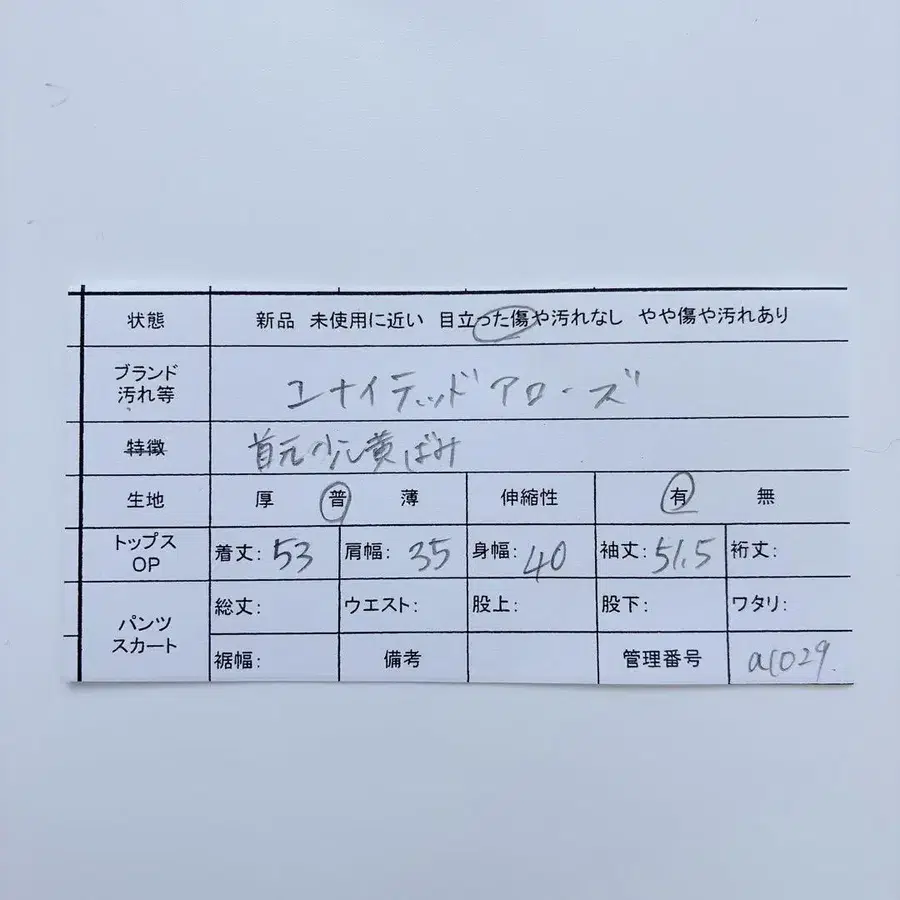 状態 新品 未使用に近い 目立った傷や汚れなし やや傷や汚れあり
ブランド 汚れ等 ユナイテッドアローズ
特徴 首元少し黄ばみ
生地 厚 普 薄 伸縮性 有 無
トップス OP 着丈: 53 肩幅: 35 身幅: 40 袖丈: 51.5 裄丈:
パンツ スカート 総丈: ウエスト: 股上: 股下: ワタリ:
裾幅: 備考 管理番号 a1029.